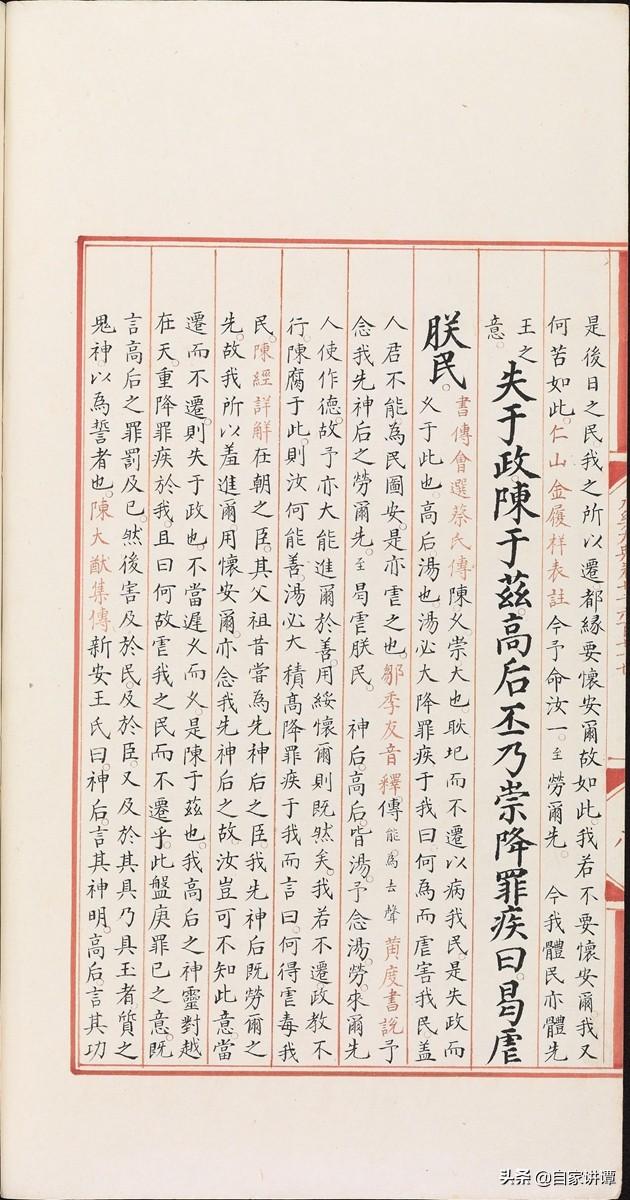 是後日之民我之所以遷都緣要懷安爾故如此我若不要懷安爾我又
何苦如此仁山金履祥表註今予命汝一至勞爾先 今我體民亦體先
王之
意
失于政陳于茲高后丕乃崇降罪疾曰曷虐
朕民
書傳會選蔡氏傳陳乆崇大也耿圯而不遷以病我民是失政而
乆于此也高后湯也湯必大降罪疾于我曰何為而虐害我民盖
人君不能為民圖安是亦虐之也鄒季友音釋傳能為去聲黃度書說予
念我先神后之勞爾先至曷虐朕民 神后高后皆湯予念湯勞來爾先
人使作德故予亦大能進爾於善用綏懷爾則既然矣我若不遷政教不
行陳腐于此則汝何能善湯必大積高降罪疾于我而言曰何得虐毒我
民陳經詳解在朝之臣其父祖昔嘗為先神后之臣我先神后既勞爾之
先故我所以羞進爾用懷安爾亦念我先神后之故汝豈可不知此意當
遷而不遷則失于政也不當遲乆而乆是陳于茲也我高后之神靈對越
在天重降罪疾於我且曰何故虐我之民而不遷乎此盤庚罪已之意既
言高后之罪罰及已然後害及於民及於臣又及於其具乃具玉者質之
鬼神以為誓者也陳大猷集傳新安王氏曰神后言其神明高后言其功
头条 @自家讲谭